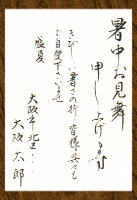 暑中お見舞
申し上げます
きびしい暑さの折 皆様
ご自愛下さいませ
盛夏
大阪市北区
大阪太郎